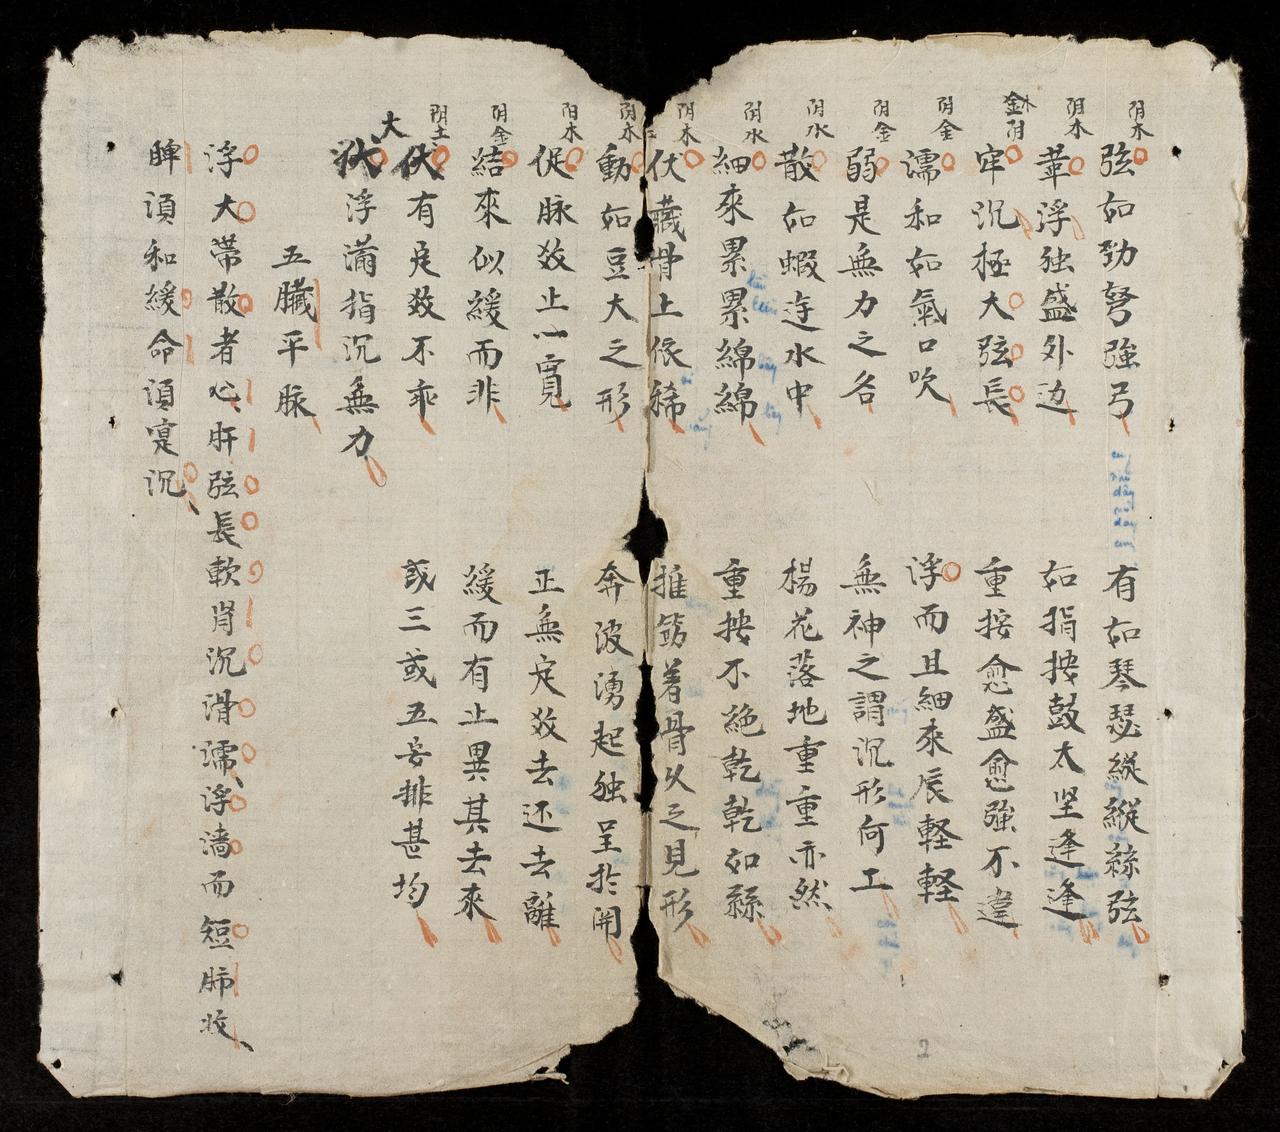 阴木
弦如勁弩強弓
有如琴瑟縱縱絲弦
阴木
革浮独盛外边
如指按鼓太坚逢逢
阴
牢沉極大弦長
重按愈盛愈強不違
阴金
濡和如氣口吹
浮而且細來辰軽軽
阴金
弱是無力之名
無神之謂沉形何工
阴水
散如蝦遊水中
楊花落地重重亦然
阴水
細來累累綿綿
重按不絶乾乾如絲
阴木
伏藏骨上依稀
推筯着骨久之見形
阴木
動如豆大之形
奔波湧起独呈於関
阴木
促脉效止以寬
正無定效去还去離
阴金
結來似緩而非
緩而有止異其去來
阴土
有定效不乖
或三或五安排甚均
大
浮滿指沉無力
五臟平脉
浮大帶散者心肝弦長軟肖沉滑濡浮濇而短肺收
脾湏和緩命湏寔沉
2